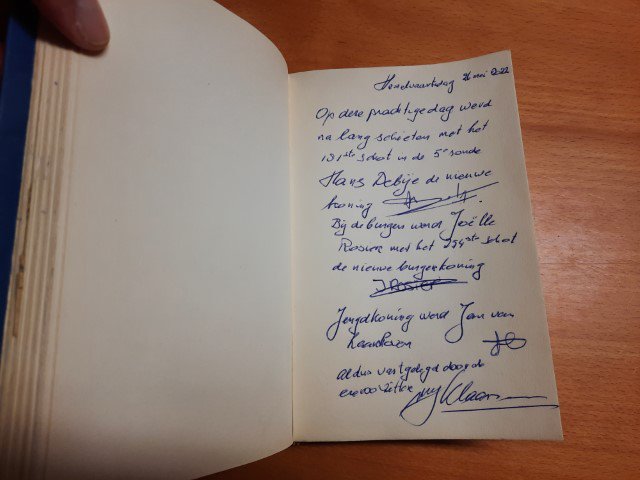 Hemelvaartsdag 26 mei 2022
Op deze prachtige dag werd
na lang schieten met het
131ste schot in de 5e ronde
Hans Debije de nieuwe
koning
Bij de burgers werd Joëlle
met het 299ste schot
de nieuwe burgerkoning
Jeugdkoning werd Jan van
aldus vastgelegd door de
erevoorzitter